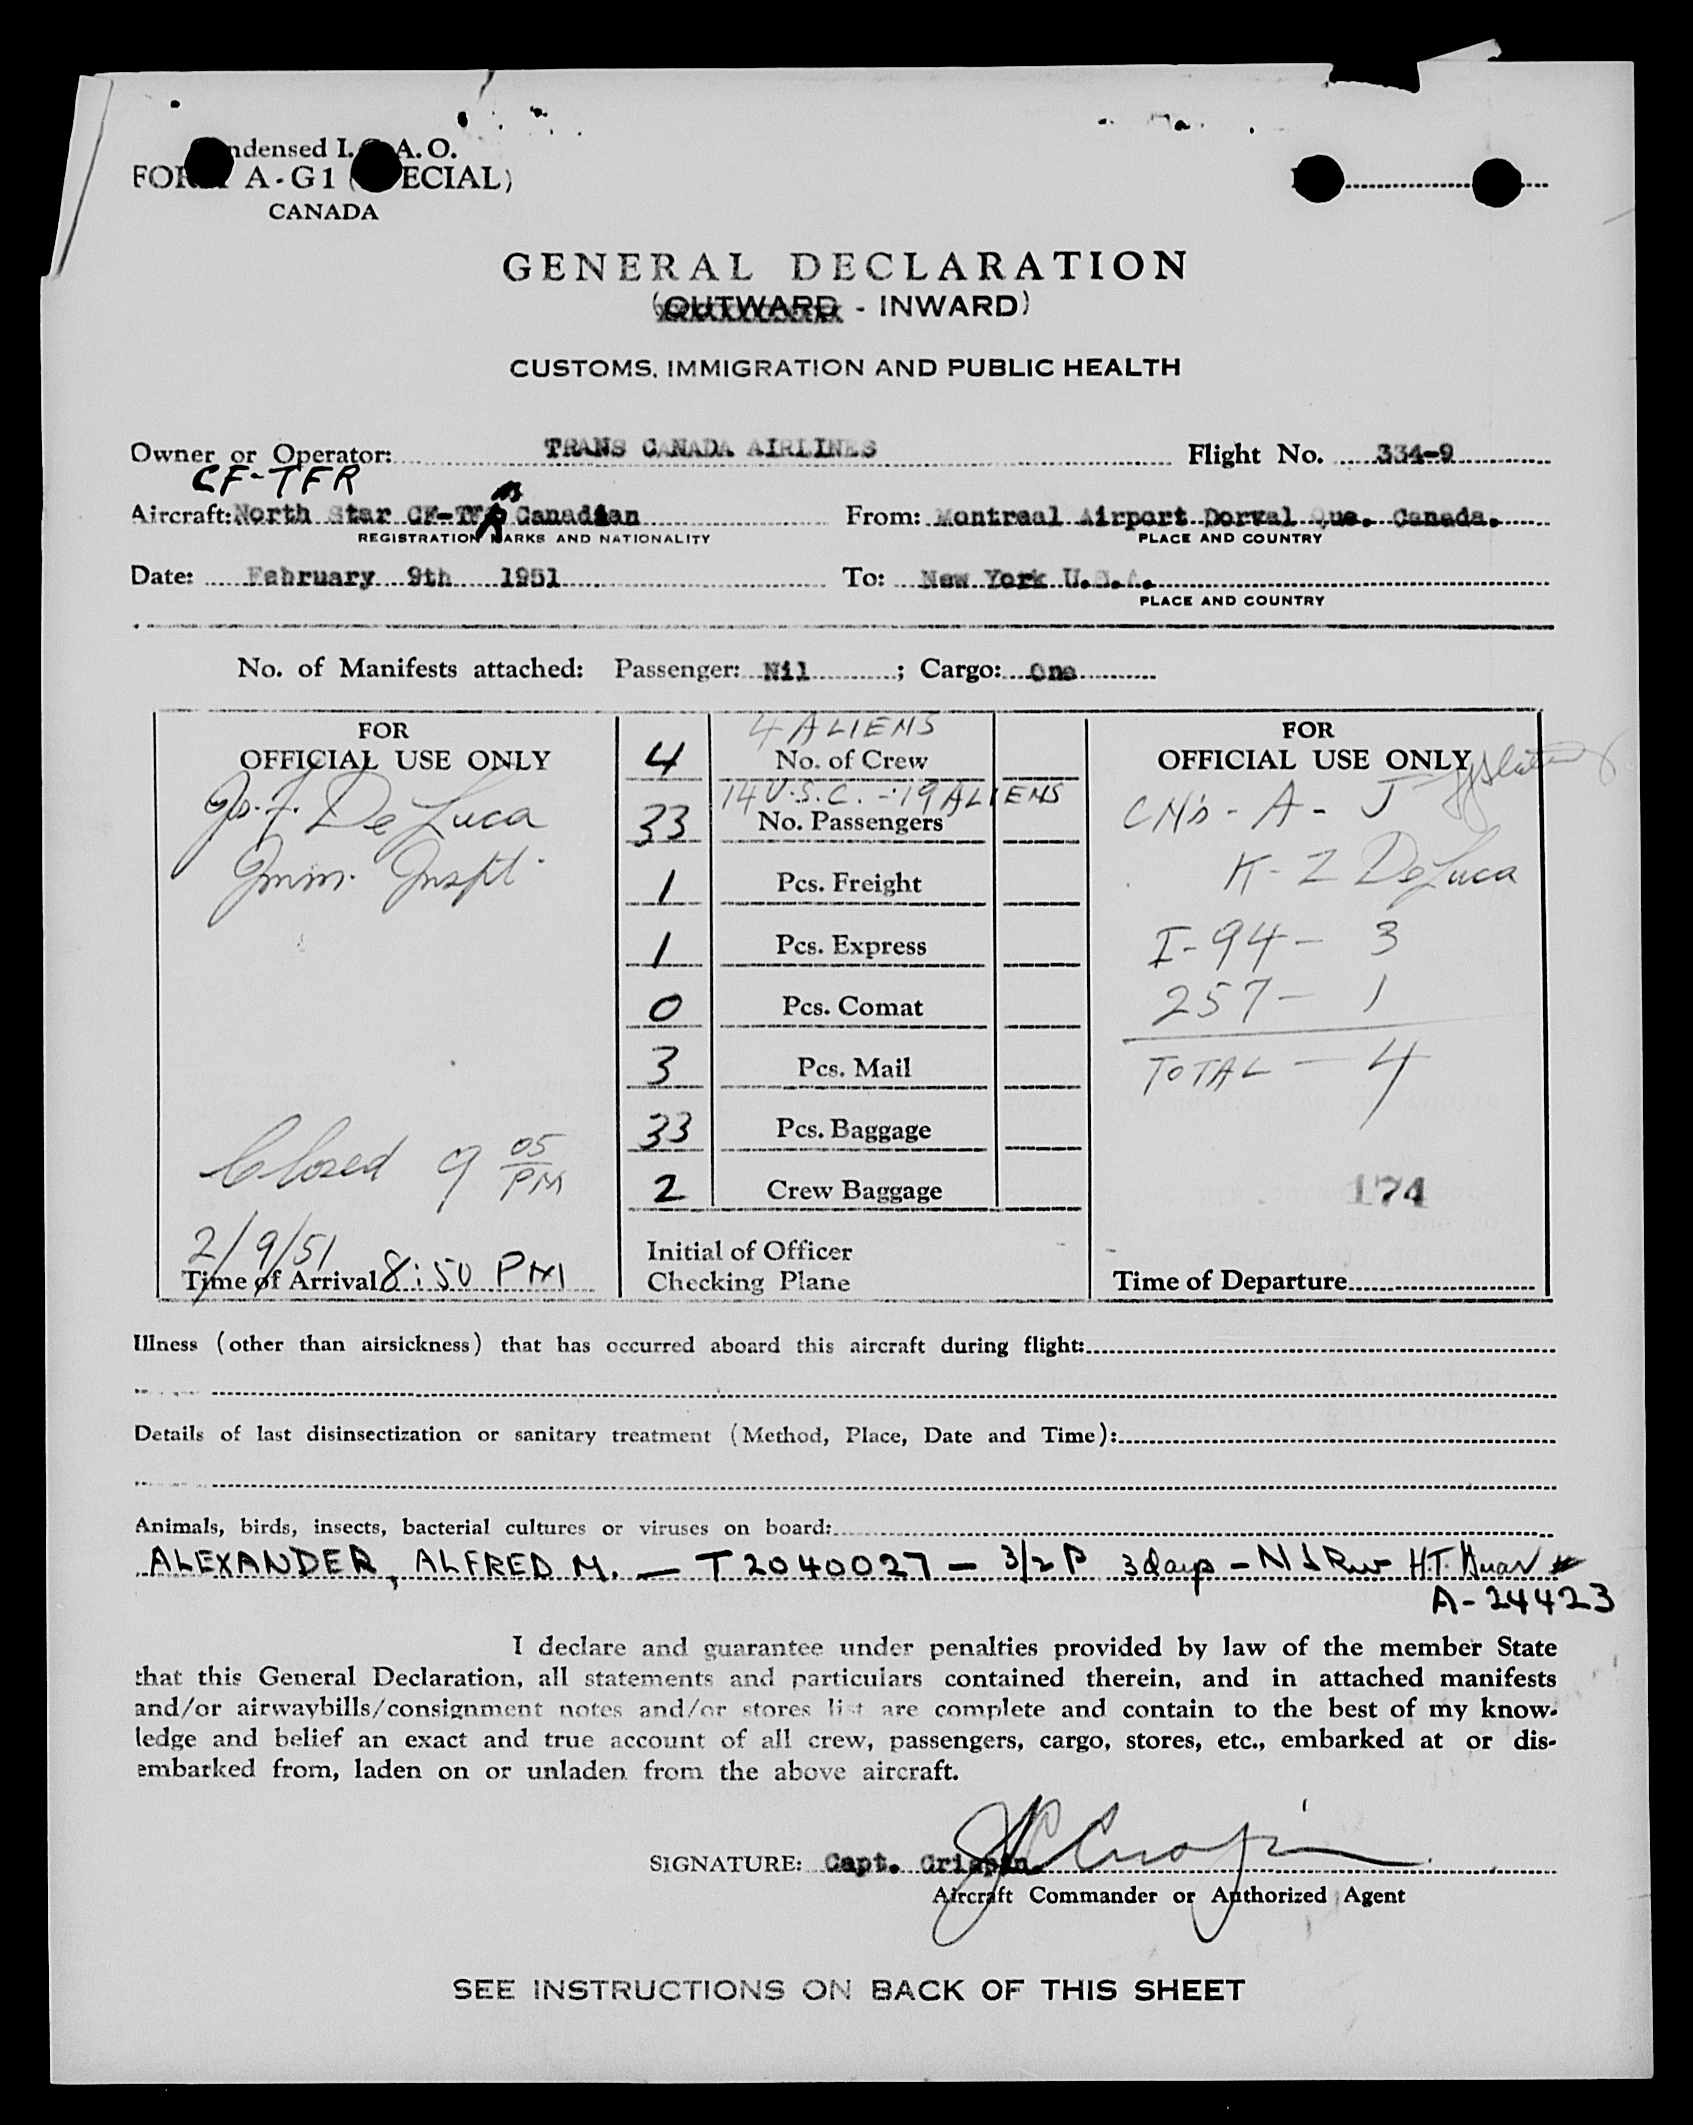 Condensed I.C.A.O.
FORM A-G1 (SPECIAL)
CANADA
GENERAL DECLARATION
(OUTWARD - INWARD)
CUSTOMS, IMMIGRATION AND PUBLIC HEALTH
Owner or Operator: TRANS CANADA AIRLINES Flight No. 334-9
CF-TFR
Aircraft: North Star CF-TFR Canadian From: Montreal Airport Dorval Que. Canada.
REGISTRATION MARKS AND NATIONALITY PLACE AND COUNTRY
Date: February 9th 1951 To: New York U.S.A.
PLACE AND COUNTRY
No. of Manifests attached: Passenger: Nil ; Cargo: One
FOR
OFFICIAL USE ONLY
Jos. F. De Luca
Imm. Inspt.
Closed 9 05 PM
2/9/51
Time of Arrival 8:50 PM
4 ALIENS
4 No. of Crew
14 U.S.C. - 19 ALIENS
33 No. Passengers
1 Pcs. Freight
1 Pcs. Express
0 Pcs. Comat
3 Pcs. Mail
33 Pcs. Baggage
2 Crew Baggage
Initial of Officer
Checking Plane
FOR
OFFICIAL USE ONLY
A - J
K - Z De Luca
I-94 - 3
257 - 1
TOTAL - 4
174
Time of Departure
Illness (other than airsickness) that has occurred aboard this aircraft during flight:
Details of last disinsectization or sanitary treatment (Method, Place, Date and Time):
Animals, birds, insects, bacterial cultures or viruses on board:
ALEXANDER, ALFRED M. — T 2040027 - 3/2 P 3 days - H.T.
A-24423
I declare and guarantee under penalties provided by law of the member State
that this General Declaration, all statements and particulars contained therein, and in attached manifests
and/or airwaybills/consignment notes and/or stores list are complete and contain to the best of my know-
ledge and belief an exact and true account of all crew, passengers, cargo, stores, etc., embarked at or dis-
embarked from, laden on or unladen from the above aircraft.
SIGNATURE: Capt. Crispin.
Aircraft Commander or Authorized Agent
SEE INSTRUCTIONS ON BACK OF THIS SHEET